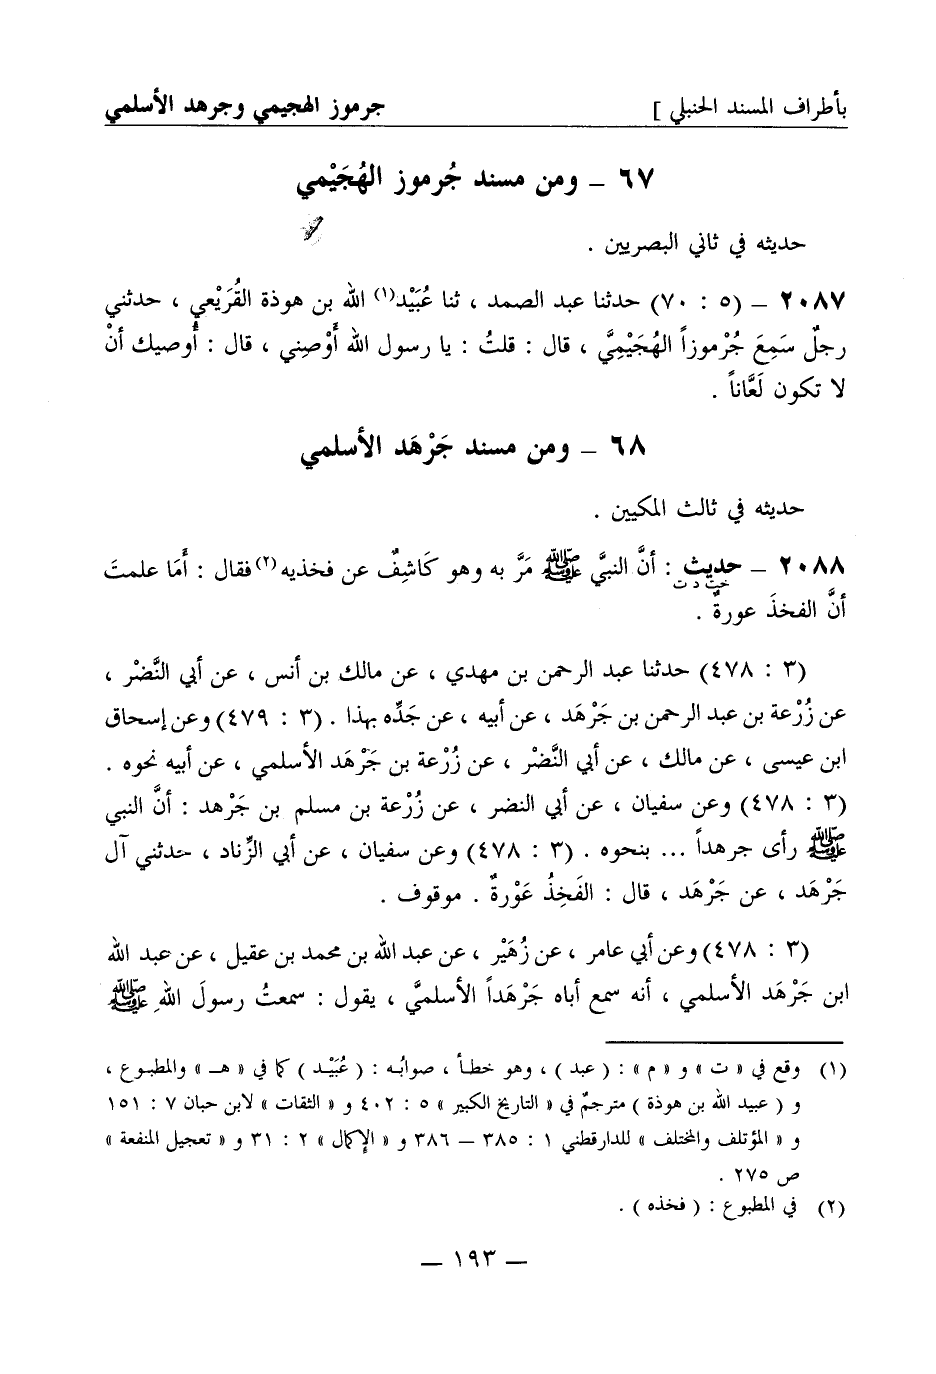 بأطراف المسند الحنبلي ] جرموز الهجيمي وجرهد الأسلمي
٦٧ ـ ومن مسند جُرموز الهُجَيْمي
حديثه في ثاني البصريين .
٢٠٨٧ ـ (٥ : ٧٠) حدثنا عبد الصمد ، ثنا عُبَيْد(١) الله بن هوذة القُرَيْعي ، حدثني
رجلٌ سَمِعَ جُرْموزاً الهُجَيْمِيَّ ، قال : قلتُ : يا رسول الله أَوْصِني ، قال : أُوصيك أنْ
لا تكون لَعَّاناً .
٦٨ ـ ومن مسند جَرْهَد الأسلمي
حديثه في ثالث المكيين .
٢٠٨٨ ـ حديث : أنَّ النبيَّ ﷺ مَرَّ به وهو كَاشِفٌ عن فخذيه(٢) فقال : أَمَا علمتَ
خت د ت
أنَّ الفخذَ عورةٌ .
(٣ : ٤٧٨) حدثنا عبد الرحمن بن مهدي ، عن مالك بن أنس ، عن أبي النَّضْر ،
عن زُرْعة بن عبد الرحمن بن جَرْهَد ، عن أبيه ، عن جَدِّه بهذا . (٣ : ٤٧٩) وعن إسحاق
ابن عيسى ، عن مالك ، عن أبي النَّضْر ، عن زُرْعة بن جَرْهَد الأسلمي ، عن أبيه نحوه .
(٣ : ٤٧٨) وعن سفيان ، عن أبي النضر ، عن زُرْعة بن مسلم بن جَرْهد : أنَّ النبي
ﷺ رأى جرهداً ... بنحوه . (٣ : ٤٧٨) وعن سفيان ، عن أبي الزِّناد ، حدثني آل
جَرْهَد ، عن جَرْهَد ، قال : الفَخِذُ عَوْرةٌ . موقوف .
(٣ : ٤٧٨) وعن أبي عامر ، عن زُهَيْر ، عن عبد الله بن محمد بن عقيل ، عن عبد الله
ابن جَرْهَد الأسلمي ، أنه سمع أباه جَرْهَداً الأسلميَّ ، يقول : سمعتُ رسولَ اللهِ ﷺ
(١) وقع في « ت » و « م » : ( عبد ) ، وهو خطأ ، صوابُه : ( عُبَيْد ) كما في « هـ » والمطبوع ،
و ( عبيد الله بن هوذة ) مترجمٌ في « التاريخ الكبير » ٥ : ٤٠٢ و « الثقات » لابن حبان ٧ : ١٥١
و « المؤتلف والمختلف » للدارقطني ١ : ٣٨٥ ـ ٣٨٦ و « الإكمال » ٢ : ٣١ و « تعجيل المنفعة »
ص ٢٧٥ .
(٢) في المطبوع : ( فخذه ) .
ـ ١٩٣ ـ